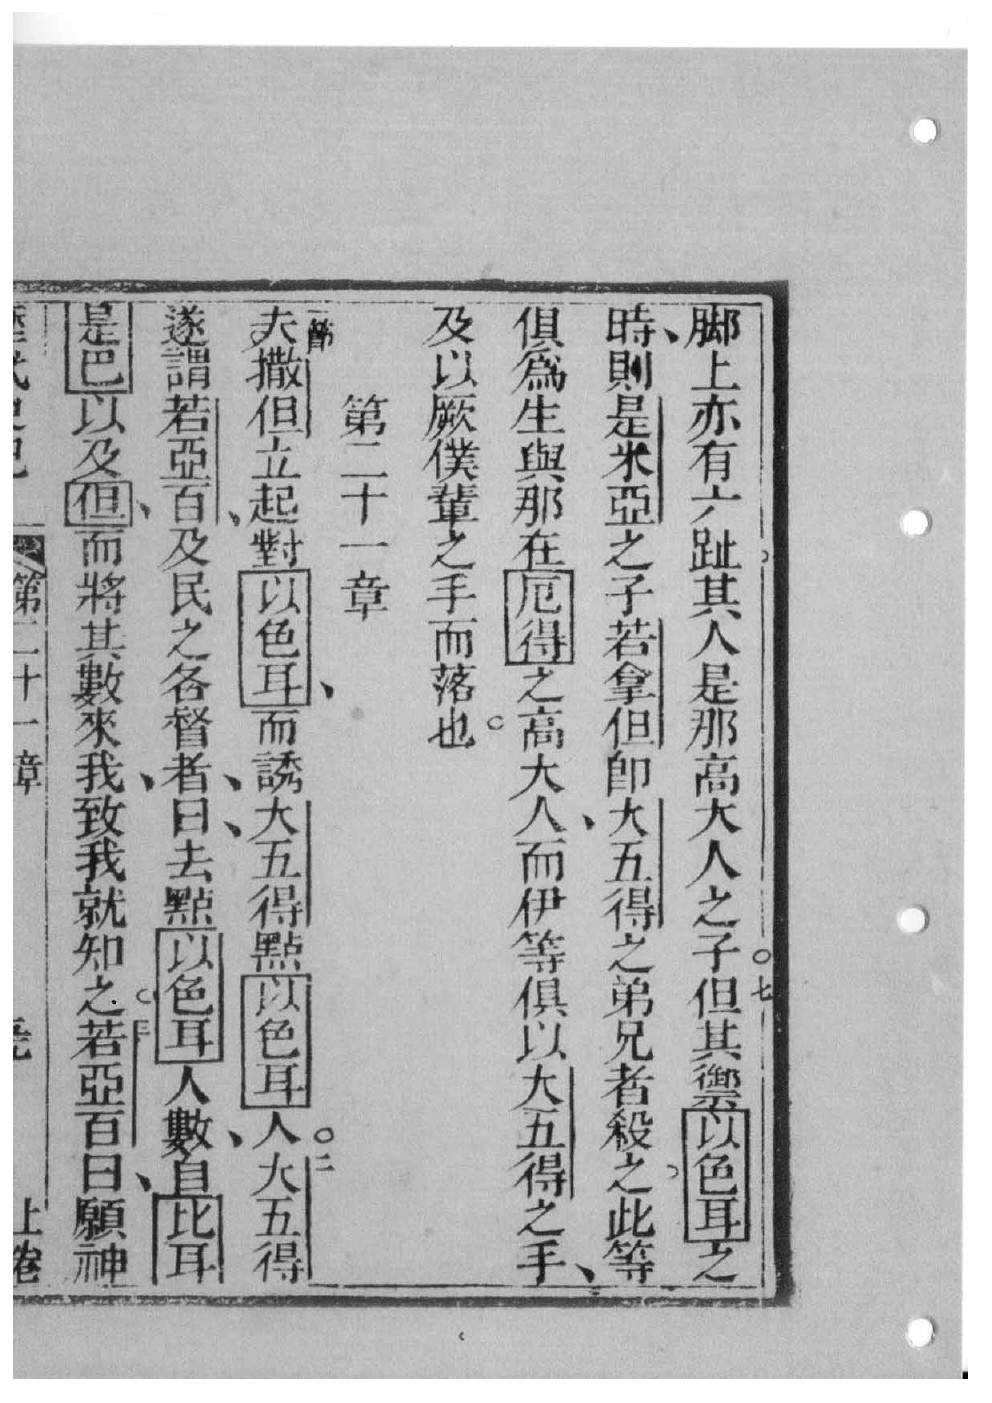 脚上亦有六趾。其人是那高大人之子。七但其禦以色耳之
時、則是米亞之子若拿但卽大五得之弟兄者殺之。此等
俱爲生與那在厄得之高大人、而伊等俱以大五得之手、
及以厥僕輩之手而落也。
第二十一章
夫撒但立起對以色耳、而誘大五得點以色耳人。二大五得
遂謂若亞百、及民之各督者、曰、去點以色耳人數、自比耳
是巴以及但、而將其數來我、致我就知之。三若亞百曰、願神
第二十一章
上卷